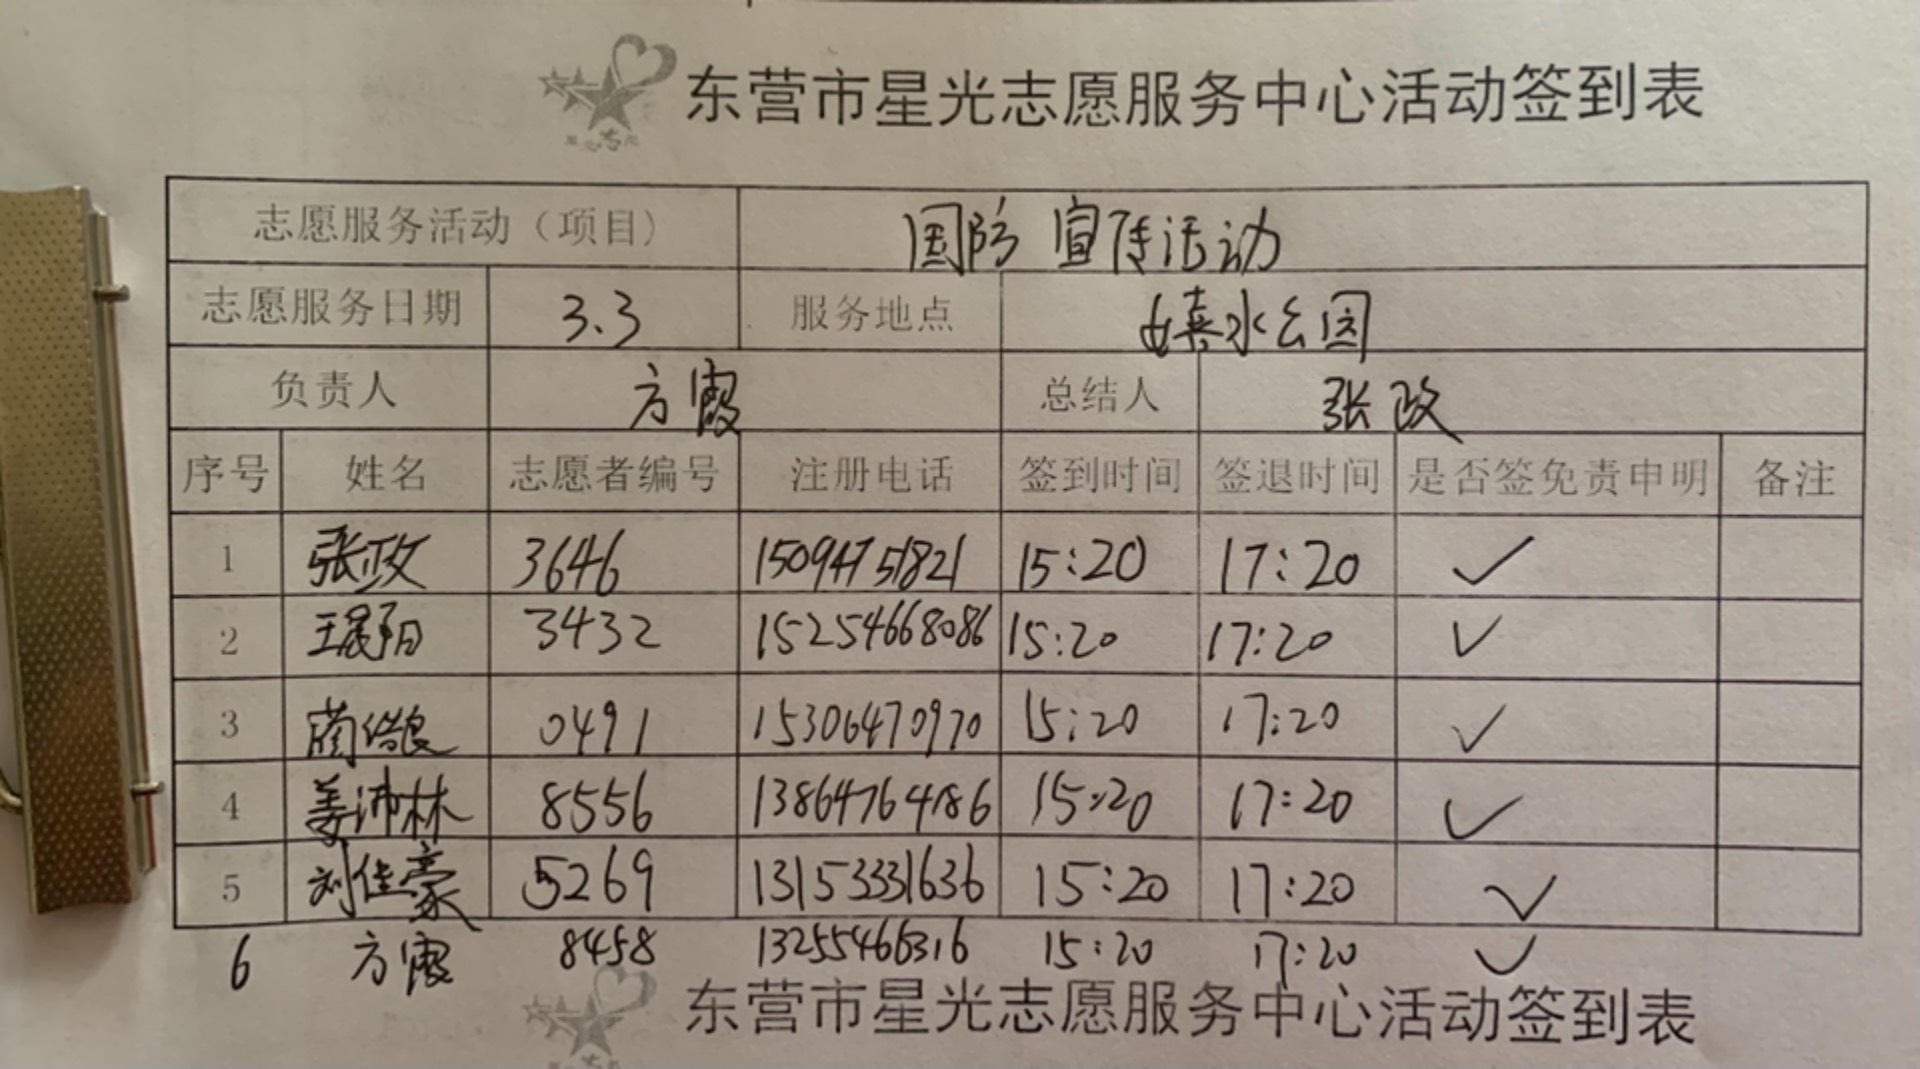 东营市星光志愿服务中心活动签到表
志愿服务活动（项目） 国防宣传活动
志愿服务日期 3.3 服务地点 嬉水公园
负责人 方霞 总结人 张政
序号 姓名 志愿者编号 注册电话 签到时间 签退时间 是否签免责申明 备注
1 张政 3646 15094751821 15:20 17:20 ✓
2 王晨阳 3432 15254668086 15:20 17:20 ✓
3 0491 15306470970 15:20 17:20 ✓
4 姜沛林 8556 13864764186 15:20 17:20 ✓
5 刘佳豪 5269 13153331636 15:20 17:20 ✓
6 方霞 8458 13255466316 15:20 17:20 ✓
东营市星光志愿服务中心活动签到表